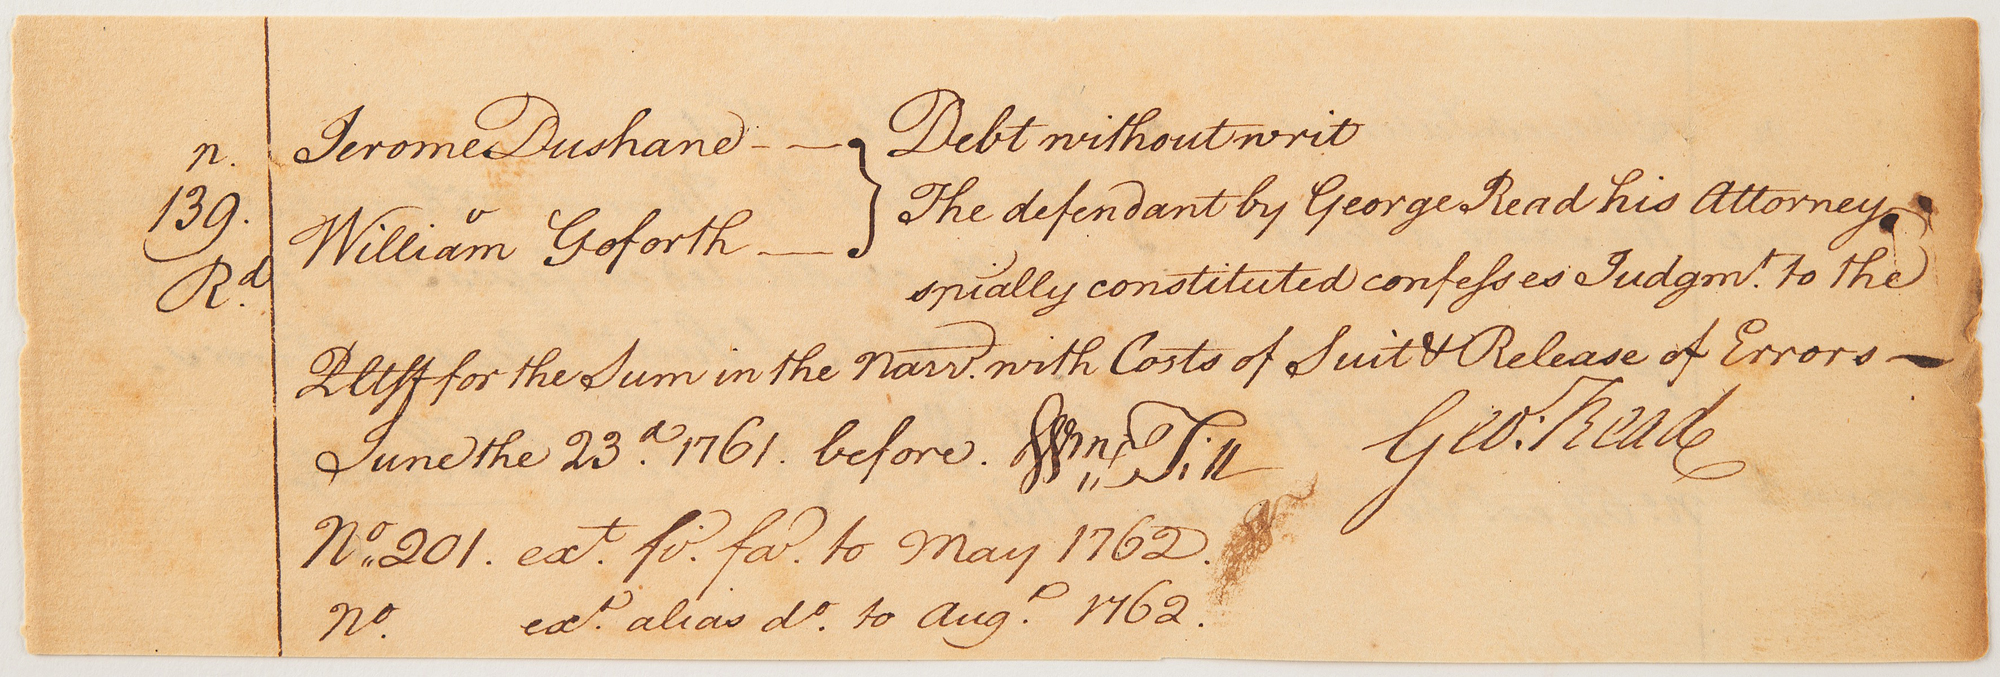 n. Jerome Dushane - — } Debt without writ
139. v
William Goforth — The defendant by George Read his Attorney
Rd. spially constituted confesses Judgmt. to the
Pltff for the Sum in the Narr. with Costs of Suit & Release of Errors —
June the 23d. 1761. before. Wm Till Geo: Read
No. 201. ext. fi. fa. to May 1762.
No. ext. alias do. to Augt. 1762.